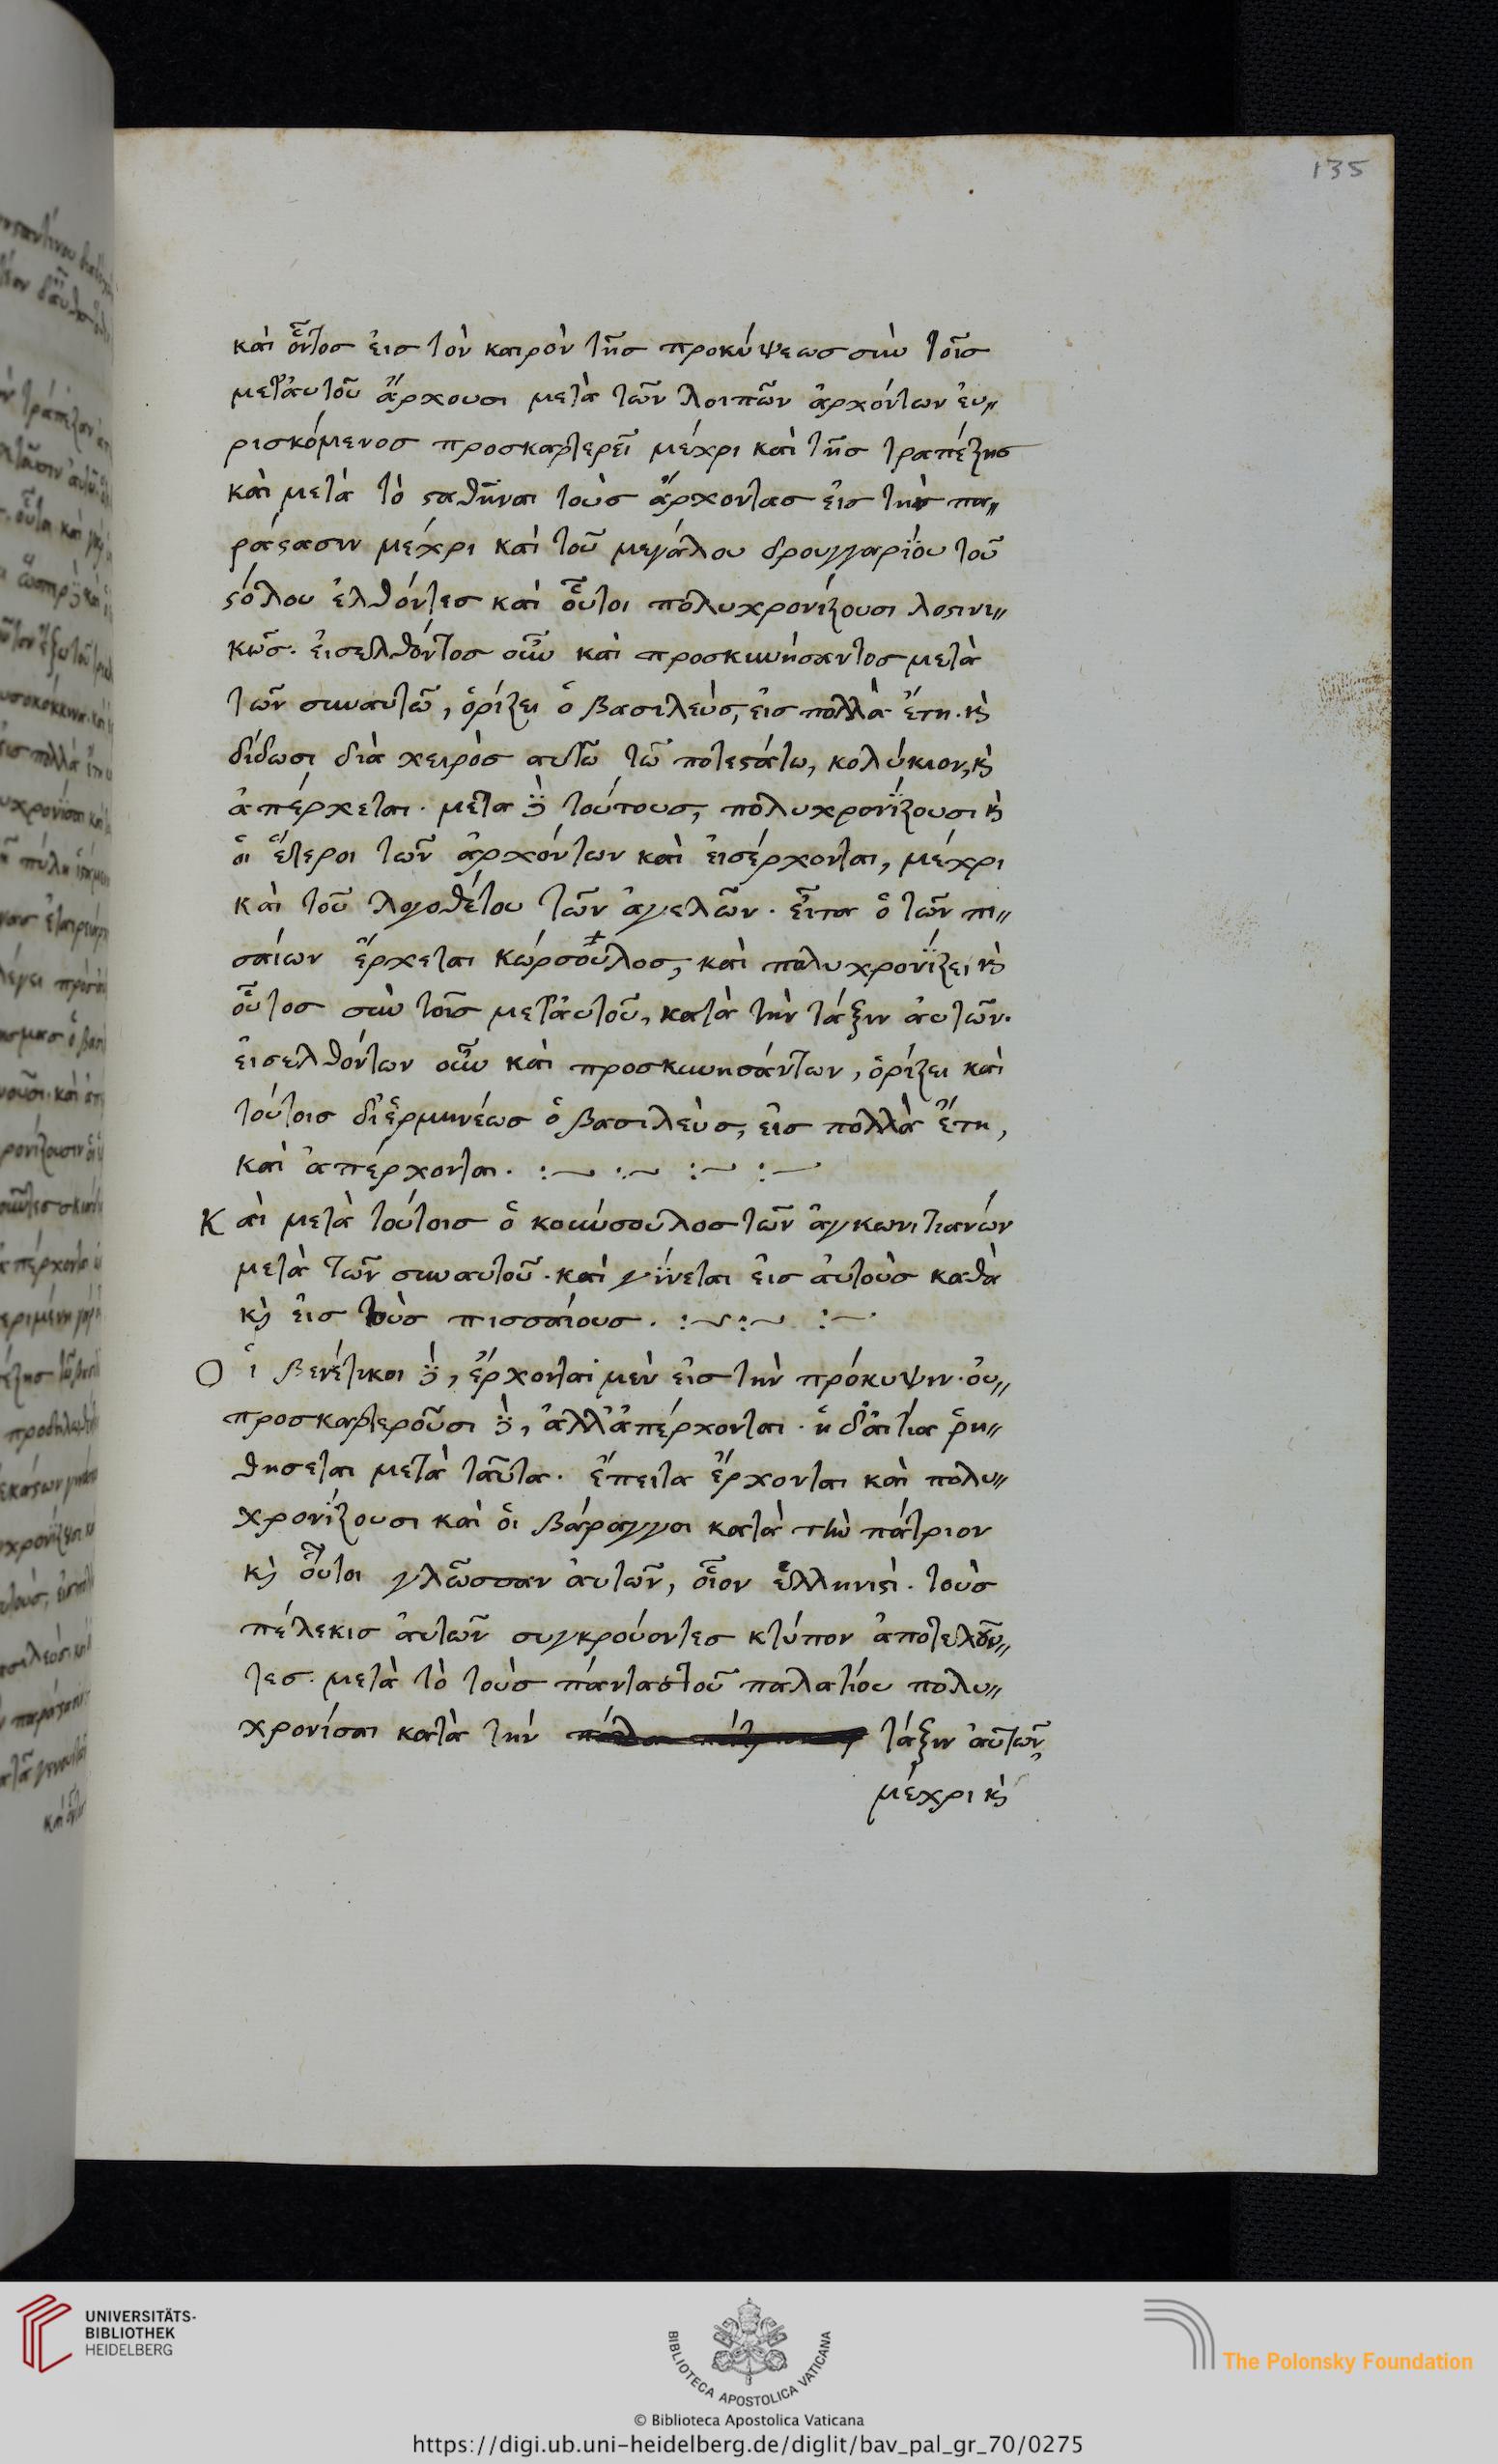 135
καὶ οὗτος εἰς τὸν καιρὸν τῆς προκύψεως σὺν τοῖς
μετ᾽αὐτοῦ ἄρχουσι μετὰ τῶν λοιπῶν ἀρχόντων εὑ〃
ρισκόμενος προσκαρτερεῖ μέχρι καὶ τῆς τραπέζης
καὶ μετὰ τὸ ϛαθῆναι τοὺς ἄρχοντας εἰς τὴν πα〃
ράϛασιν μέχρι καὶ τοῦ μεγάλου δρουγγαρΐου τοῦ
ϛόλου ἐλθόντες καὶ οὗτοι πολυχρονίζουσι λατινι〃
κῶς. εἰσελθόντος οὖν καὶ προσκυνήσαντος μετὰ
τῶν συναυτῶ, ὁρίζει ὁ βασιλεὺς, εἰς πολλὰ ἔτη. κὶ
δίδωσι διὰ χειρὸς αυτῶ τῶ ποτεϛάτω, κολύκιον, κὶ
ἀπέρχεται. μετα δὲ τούτους, πολυχρονΐζουσι κὶ
οἱ ἕτεροι τῶν ἀρχόντων καὶ εἰσέρχονται, μέχρι
καὶ τοῦ λογοθέτου τῶν ἀγελῶν. εἶτα ὁ τῶν πι〃
σαίων ἔρχεται κώρσούλος, καὶ πολυχρονΐζει κὶ
οὗτος σὺν τοῖς μετ᾽ἀυτοῦ, κατὰ τὴν τάξιν ἀυτῶν.
εἰσελθόντων οὖν καὶ προσκυνησάντων, ὁρίζει καὶ
τούτοις δι᾽ἑρμηνέως ὁ βασιλεὺς, εἰς πολλὰ ἔτη,
καὶ ἀπέρχονται. :~ :~ :~ :~
Καὶ μετὰ τούτοις ὁ κονύσουλος τῶν ἀγκωνιτιανών
μετὰ τῶν συναυτοῦ. καὶ γΐνεται εἰς ἀυτοὺς καθὰ
κὶ εἰς τοὺς πισσαίους. :~:~ :~
Οἱ βενέτικοι δὲ, ἔρχονται μὲν εἰς τὴν πρόκυψιν. ὀυ〃
προσκαρτεροῦσι δὲ, ἀλλ᾽ἀπέρχονται. ἡ δ᾽ἀιτία ῥη〃
θησεται μετὰ ταῦτα. ἔπειτα ἔρχονται καὶ πολυ〃
χρονΐζουσι καὶ οἱ βάραγγοι κατὰ τὴν πάτριον
κὶ οὗτοι γλῶσσαν ἀυτῶν, οἷον ἑλληνιϛί. τοὺς
πέλεκις ἀυτῶν συγκρούοντες κτύπον ἀποτελοῦν〃
τες. μετὰ τὸ τοὺς πάντας τοῦ παλατίου πολυ〃
χρονίσαι κατὰ τὴν τάξιν ἀυτῶν,
μέχρι κὶ
UNIVERSITÄTS-
BIBLIOTHEK
HEIDELBERG
BIBLIOTECA APOSTOLICA VATICANA
The Polonsky Foundation
© Biblioteca Apostolica Vaticana
https://digi.ub.uni-heidelberg.de/diglit/bav_pal_gr_70/0275